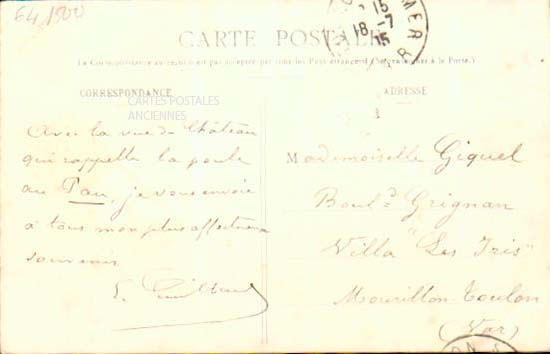 64 1500
15
18-7
15
MER
CARTE POSTALE
La Correspondance au recto n'est pas acceptée par tous les Pays étrangers (Se renseigner à la Poste.)
CORRESPONDANCE
ADRESSE
CARTES POSTALES
ANCIENNES
Avec la vue du Château
qui rappelle la poule
au Pau, je vous envoie
à tous mon plus affectueux
souvenir.
Mademoiselle Giquel
Boul.d Grignan
Villa "Les Iris"
Mourillon-Toulon
(Var)